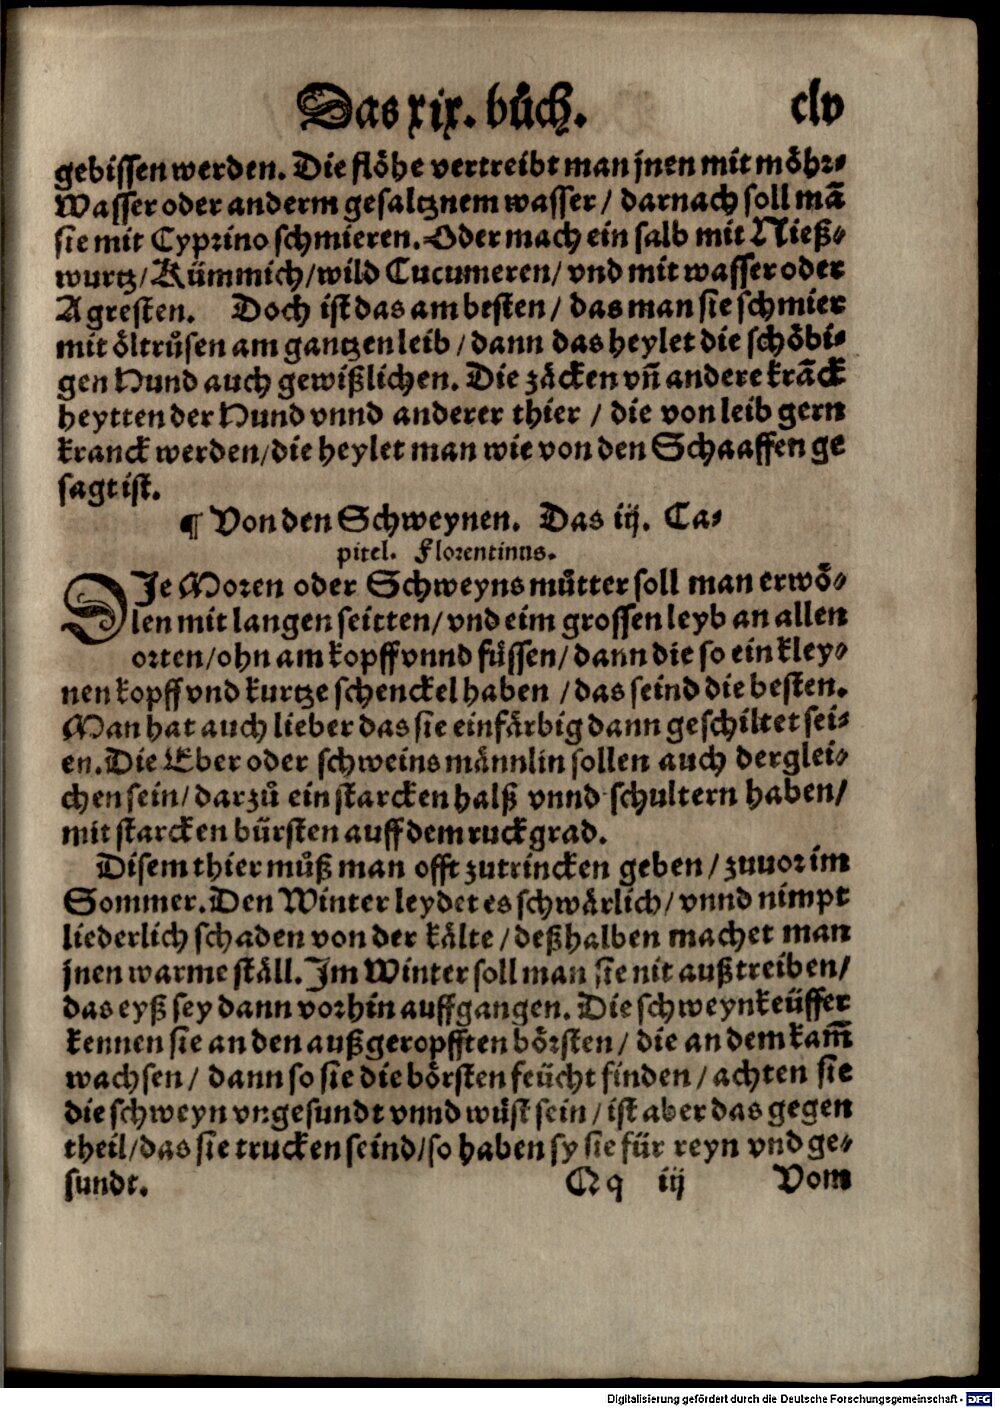 Das xix. bůch. clv
gebissen werden. Die flöhe vertreibt man jnen mit möhr⸗
Wasser oder anderm gesaltznem wasser / darnach soll mā
sie mit Cyprino schmieren. Oder mach ein salb mit Nieß⸗
wurtz / Kümmich / wild Cucumeren / vnd mit wasser oder
Agresten. Doch ist das am besten / das man sie schmier
mit öltrůsen am gantzen leib / dann das heylet die schöbi⸗
gen Hund auch gewißlichen. Die zäcken vñ andere krāck
heytten der Hund vnnd anderer thier / die von leib gern
kranck werden / die heylet man wie von den Schaaffen ge
sagt ist.
¶ Von den Schweynen. Das iij. Ca⸗
pitel. Florentinus.
DIe Moren oder Schweynsmůtter soll man erwö⸗
len mit langen seitten / vnd eim grossen leyb an allen
orten / ohn am kopff vnnd füssen / dann die so ein kley⸗
nen kopff vnd kurtze schenckel haben / das seind die besten.
Man hat auch lieber das sie einfärbig dann geschiltet sei⸗
en. Die Eber oder schweinsmännlin sollen auch derglei⸗
chen sein / darzů ein starcken halß vnnd schultern haben /
mit starcken bürsten auff dem ruckgrad.
Disem thier můß man offt zutrincken geben / zuuor im
Sommer. Den Winter leydet es schwärlich / vnnd nimpt
liederlich schaden von der kälte / deßhalben machet man
jnen warme ställ. Im Winter soll man sie nit außtreiben /
das eyß sey dann vorhin auffgangen. Die schweynkeüffer
kennen sie an den außgeropfften börsten / die an dem kam̃
wachsen / dann so sie die börsten feücht finden / achten sie
die schweyn vngesundt vnnd wůst sein / ist aber das gegen
theil / das sie trucken seind / so haben sy sie für reyn vnd ge⸗
sundt. Qq iij Vom
Digitalisierung gefördert durch die Deutsche Forschungsgemeinschaft - DFG